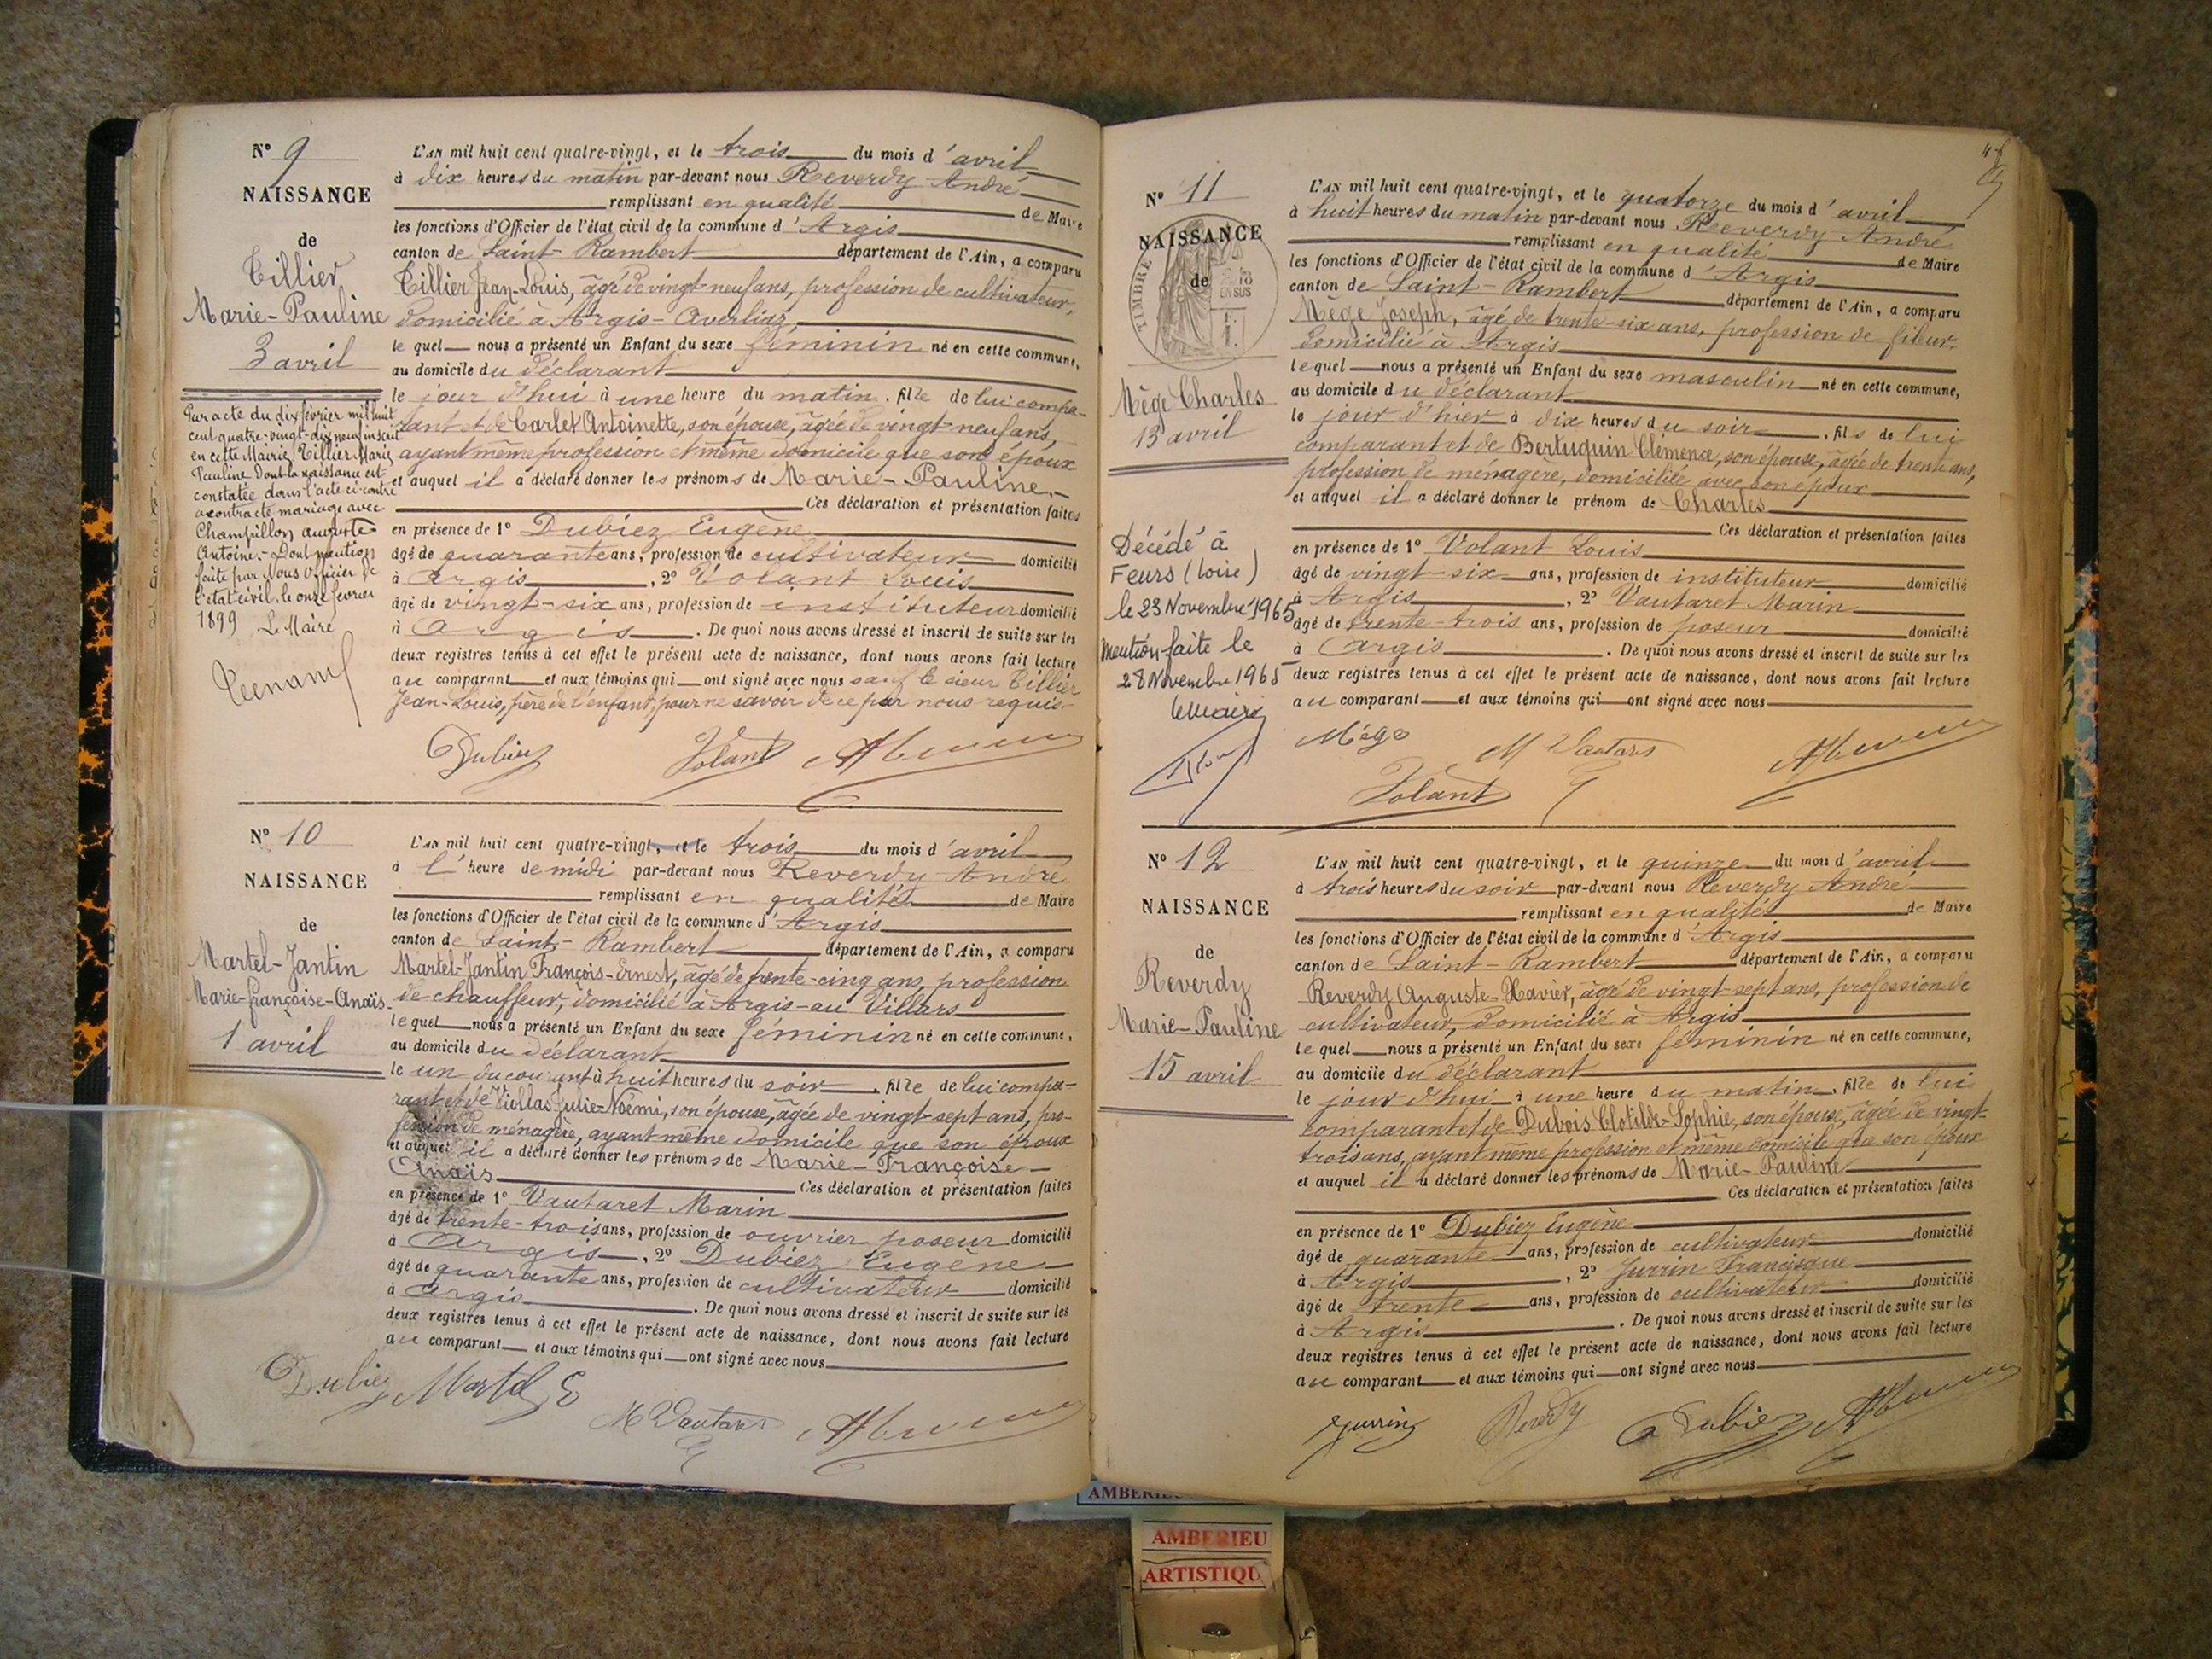 N° 9
NAISSANCE
de
Tillier
Marie-Pauline
3 avril
Par acte du dix février mil huit
cent quatre-vingt-dix neuf inscrit
en cette Mairie, Tillier Marie
Pauline dont la naissance est
constatée dans l'acte ci-contre
a contracté mariage avec
Champillon auguste
Antoine.- Dont mention
faite par Nous Officier de
l'état civil, le onze février
1899 Le Maire
L'AN mil huit cent quatre-vingt, et le trois du mois d'avril
à dix heures du matin par-devant nous Reverdy André
remplissant en qualité de Maire
les fonctions d'Officier de l'état civil de la commune d'Argis
canton de Saint-Rambert département de l'Ain, a comparu
Tillier Jean-Louis, âgé de vingt-neuf ans, profession de cultivateur,
domicilié à Argis-Averliaz,
le quel nous a présenté un Enfant du sexe féminin né en cette commune,
au domicile du déclarant
le jour d'hui à une heure du matin. fille de lui compa-
rant et de Carlet Antoinette, son épouse, âgée de vingt-neuf ans,
ayant même profession et même domicile que son époux
et auquel il a déclaré donner les prénoms de Marie-Pauline.-
Ces déclaration et présentation faites
en présence de 1° Dubiez Eugène
âgé de quarante ans, profession de cultivateur domicilié
à Argis, 2° Volant Louis
âgé de vingt-six ans, profession de instituteur domicilié
à Argis. De quoi nous avons dressé et inscrit de suite sur les
deux registres tenus à cet effet le présent acte de naissance, dont nous avons fait lecture
au comparant et aux témoins qui ont signé avec nous sauf le sieur Tillier
Jean-Louis, père de l'enfant, pour ne savoir de ce par nous requis.-
Dubiez Volant
N° 10
NAISSANCE
de
Martel-Jantin
Marie-françoise-Anaïs
1 avril
L'AN mil huit cent quatre-vingt, et le trois du mois d'avril
à l'heure de midi par-devant nous Reverdy André
remplissant en qualités de Maire
les fonctions d'Officier de l'état civil de la commune d'Argis
canton de Saint-Rambert département de l'Ain, a comparu
Martel-Jantin François-Ernest, âgé de trente-cinq ans, profession
de chauffeur, domicilié à Argis-au Villars
le quel nous a présenté un Enfant du sexe féminin né en cette commune,
au domicile du déclarant
le un du courant à huit heures du soir. fille de lui compa-
rant et de Viollas Julie-Noémi, son épouse, âgée de vingt-sept ans, pro-
fession de ménagère, ayant même domicile que son époux
et auquel il a déclaré donner les prénoms de Marie-Françoise-
Anaïs Ces déclaration et présentation faites
en présence de 1° Vautaret Marin
âgé de trente-trois ans, profession de ouvrier poseur domicilié
à Argis, 2° Dubiez Eugène
âgé de quarante ans, profession de cultivateur domicilié
à Argis. De quoi nous avons dressé et inscrit de suite sur les
deux registres tenus à cet effet le présent acte de naissance, dont nous avons fait lecture
au comparant et aux témoins qui ont signé avec nous
Dubiez Martel E
M Vautaret
N° 11
NAISSANCE
de
TIMBRE
EN SUS
Mège Charles
13 avril
Décédé à
Feurs (Loire)
le 23 Novembre 1965
Mention faite le
28 Novembre 1965
le Maire
L'AN mil huit cent quatre-vingt, et le quatorze du mois d'avril
à huit heures du matin par-devant nous Reverdy André
remplissant en qualité de Maire
les fonctions d'Officier de l'état civil de la commune d'Argis
canton de Saint-Rambert département de l'Ain, a comparu
Mège Joseph, âgé de trente-six ans, profession de fileur,
domicilié à Argis
le quel nous a présenté un Enfant du sexe masculin né en cette commune,
au domicile du déclarant
le jour d'hier à dix heures du soir. fils de lui
comparant et de Bertuguin Clémence, son épouse, âgée de trente ans,
profession de ménagère, domiciliée avec son époux
et auquel il a déclaré donner le prénom de Charles
Ces déclaration et présentation faites
en présence de 1° Volant Louis
âgé de vingt-six ans, profession de instituteur domicilié
à Argis, 2° Vautaret Marin
âgé de trente-trois ans, profession de poseur domicilié
à Argis. De quoi nous avons dressé et inscrit de suite sur les
deux registres tenus à cet effet le présent acte de naissance, dont nous avons fait lecture
au comparant et aux témoins qui ont signé avec nous
Mége M Vautaret
Volant
N° 12
NAISSANCE
de
Reverdy
Marie-Pauline
15 avril
L'AN mil huit cent quatre-vingt, et le quinze du mois d'avril
à trois heures du soir par-devant nous Reverdy André
remplissant en qualités de Maire
les fonctions d'Officier de l'état civil de la commune d'Argis
canton de Saint-Rambert département de l'Ain, a comparu
Reverdy Auguste-Xavier, âgé de vingt-sept ans, profession de
cultivateur, domicilié à Argis
le quel nous a présenté un Enfant du sexe féminin né en cette commune,
au domicile du déclarant
le jour d'hui à une heure du matin. fille de lui
comparant et de Dubois Clotilde-Sophie, son épouse, âgée de vingt-
trois ans, ayant même profession et même domicile que son époux
et auquel il a déclaré donner les prénoms de Marie-Pauline
Ces déclaration et présentation faites
en présence de 1° Dubiez Eugène
âgé de quarante ans, profession de cultivateur domicilié
à Argis, 2° Jurrin Francisque
âgé de trente ans, profession de cultivateur domicilié
à Argis. De quoi nous avons dressé et inscrit de suite sur les
deux registres tenus à cet effet le présent acte de naissance, dont nous avons fait lecture
au comparant et aux témoins qui ont signé avec nous
Jurrin Reverdy Dubiez
AMBERIEU
AMBERIEU
ARTISTIQU